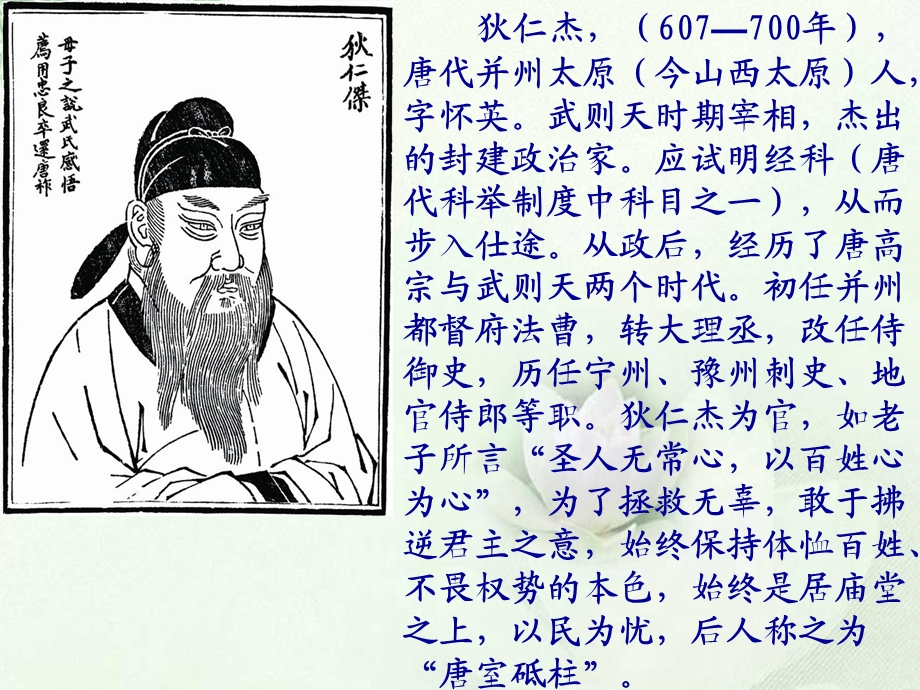 狄仁傑
母子之說武氏感悟
薦用忠良卒還唐祚
狄仁杰，（607—700年），
唐代并州太原（今山西太原）人，
字怀英。武则天时期宰相，杰出
的封建政治家。应试明经科（唐
代科举制度中科目之一），从而
步入仕途。从政后，经历了唐高
宗与武则天两个时代。初任并州
都督府法曹，转大理丞，改任侍
御史，历任宁州、豫州刺史、地
官侍郎等职。狄仁杰为官，如老
子所言“圣人无常心，以百姓心
为心”，为了拯救无辜，敢于拂
逆君主之意，始终保持体恤百姓、
不畏权势的本色，始终是居庙堂
之上，以民为忧，后人称之为
“唐室砥柱”。